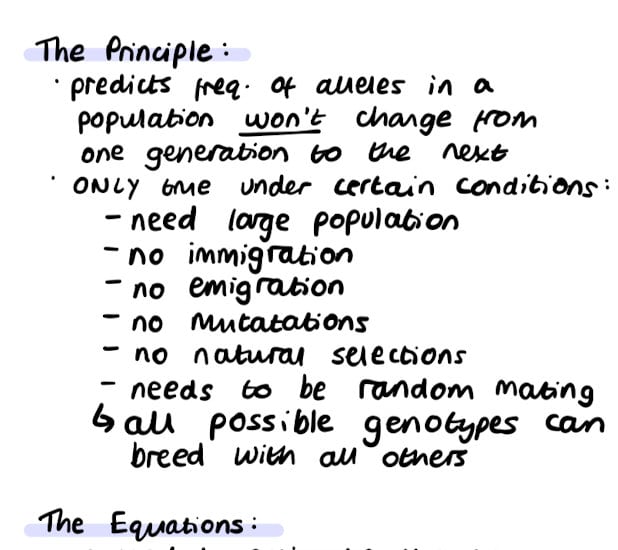 The Principle:
· predicts freq. of alleles in a
population won't change from
one generation to the next
· ONLY true under certain conditions:
- need large population
- no immigration
- no emigration
- no Mutatations
- no natural selections
- needs to be random mating
↳ all possible genotypes can
breed with all others
The Equations: